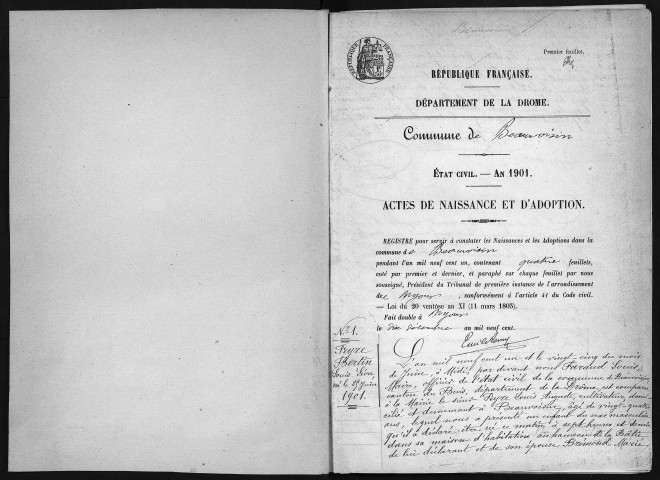 Beauvoisin
Premier feuillet,
RÉPUBLIQUE FRANÇAISE
RÉPUBLIQUE FRANÇAISE.
DÉPARTEMENT DE LA DROME.
Commune de Beauvoisin
ÉTAT CIVIL. — AN 1901.
ACTES DE NAISSANCE ET D'ADOPTION.
REGISTRE pour servir à constater les Naissances et les Adoptions dans la
commune de Beauvoisin
pendant l'an mil neuf cent un, contenant quatre feuillets,
coté par premier et dernier, et paraphé sur chaque feuillet par nous
soussigné, Président du Tribunal de première instance de l'arrondissement
de Nyons, conformément à l'article 41 du Code civil.
— Loi du 20 ventôse an XI (11 mars 1803).
Fait double à Nyons
le dix décembre an mil neuf cent.
N° 1.
Peyre
Bertin
Louis
né le 25 Juin
1901.
L'an mil neuf cent un et le vingt-cinq du mois
de Juin, à Midi, par devant nous Faraud Louis,
Maire, officier de l'état civil de la commune de Beauvoisin
canton du Buis, département de la Drôme, est comparu
à la Mairie le sieur Peyre Louis Auguste, cultivateur, domi-
cilié et demeurant à Beauvoisin, âgé de vingt-quatre
ans, lequel nous a présenté un enfant du sexe masculin
qu'il a déclaré être né ce matin à sept heures et demie
dans sa maison d'habitation au hameau de la Bâtie
de lui déclarant et de son épouse Brémond Marie